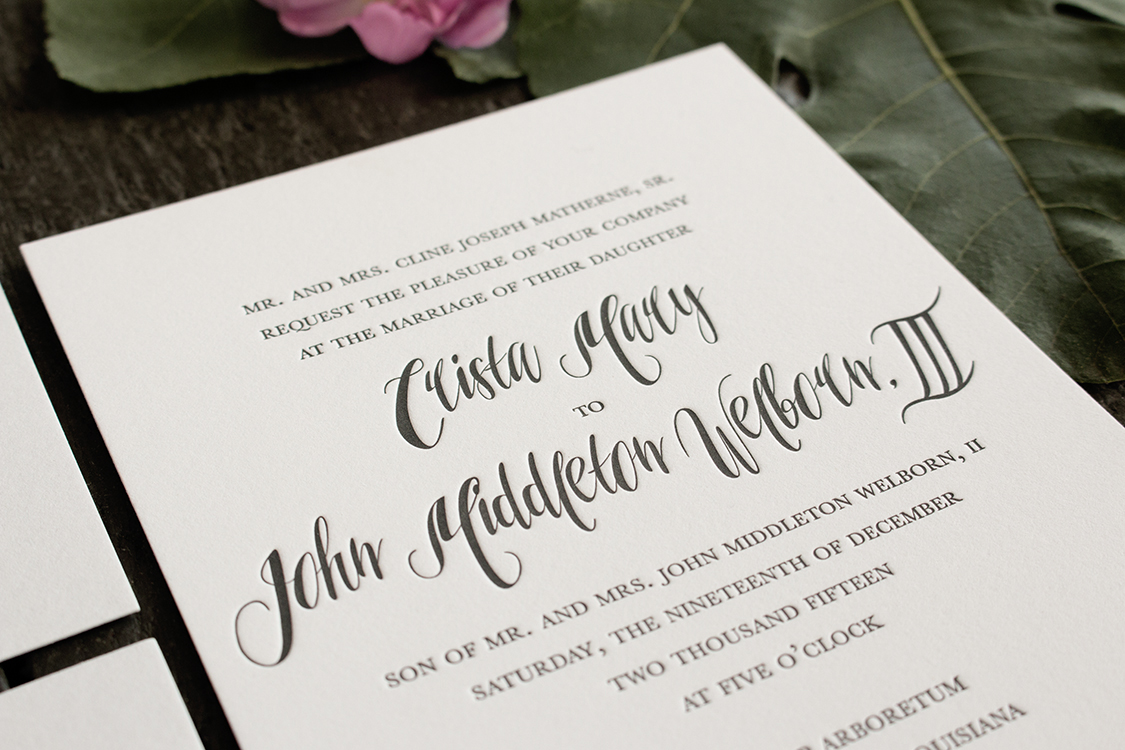 MR. AND MRS. CLINE JOSEPH MATHERNE, SR.
REQUEST THE PLEASURE OF YOUR COMPANY
AT THE MARRIAGE OF THEIR DAUGHTER
Crista Mary
TO
John Middleton Welborn, III
SON OF MR. AND MRS. JOHN MIDDLETON WELBORN, II
SATURDAY, THE NINETEENTH OF DECEMBER
TWO THOUSAND FIFTEEN
AT FIVE O'CLOCK
ARBORETUM